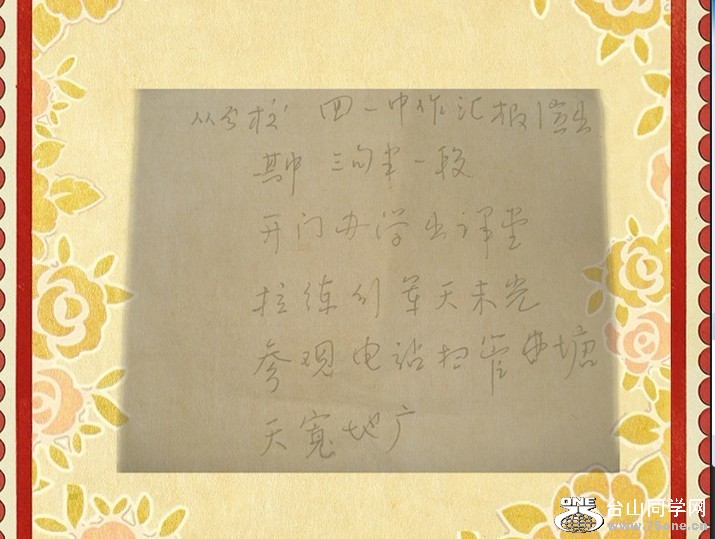 从分校 四一中作汇报演出
其中 三句半一段
开门办学出课堂
拉练行军天未光
参观电站扫管塘
天宽地广
ONE 台山同学网
www.75one.cn